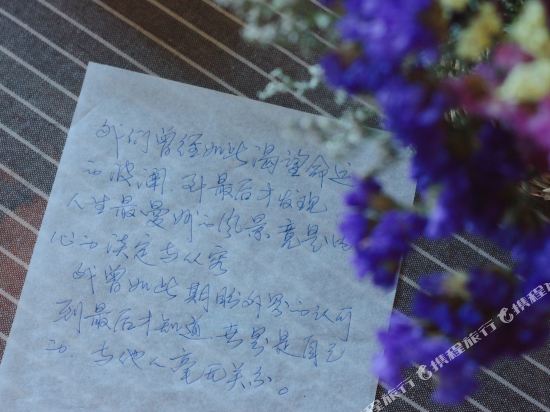 我们曾经如此渴望命运
的波澜 到最后才发现
人生最曼妙的风景 竟是内
心的淡定与从容
我曾如此期盼外界的认可
到最后才知道 世界是自己
的. 与他人毫无关系。
@携程旅行
@携程旅行